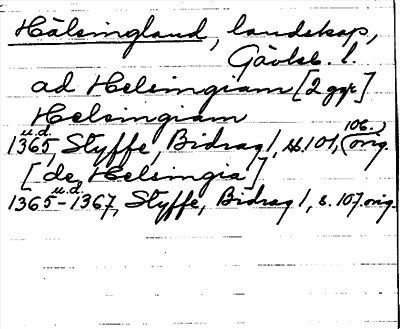 Hälsingland, landskap,
Gävleb. l.
ad Helsingiam [2 ggr]
Helsingiam
u.d. 106.)
1365, Styffe, Bidrag 1, ss. 101, (orig.
[de Helsingia]
u.d.
1365-1367, Styffe, Bidrag 1, s. 107. orig.